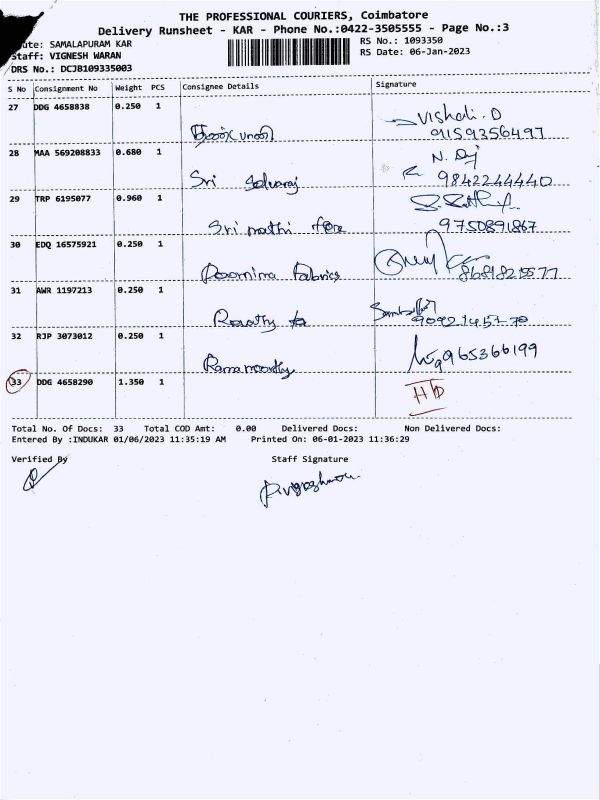 THE PROFESSIONAL COURIERS, Coimbatore
Delivery Runsheet - KAR - Phone No.:0422-3505555 - Page No.:3
SAMALAPURAM KAR RS No.: 1093350
Staff: VIGNESH WARAN RS Date: 06-Jan-2023
DRS No.: DCJB109335003
S No Consignment No Weight PCS Consignee Details Signature
27 DDG 4658838 0.250 1 Vishali.D
91159356497
28 MAA 569208833 0.680 1 Sri Selvaraj
9842244440
29 TRP 6195077 0.960 1 Sri mathi
9750891867
30 EDQ 16575921 0.250 1 Poornima Fabrics
31 AWR 1197213 0.250 1
32 RJP 3073012 0.250 1 Ramamoorthy
9965366199
33 DDG 4658290 1.350 1 HD
Total No. Of Docs: 33 Total COD Amt: 0.00 Delivered Docs: Non Delivered Docs:
Entered By :INDUKAR 01/06/2023 11:35:19 AM Printed On: 06-01-2023 11:36:29
Verified By Staff Signature